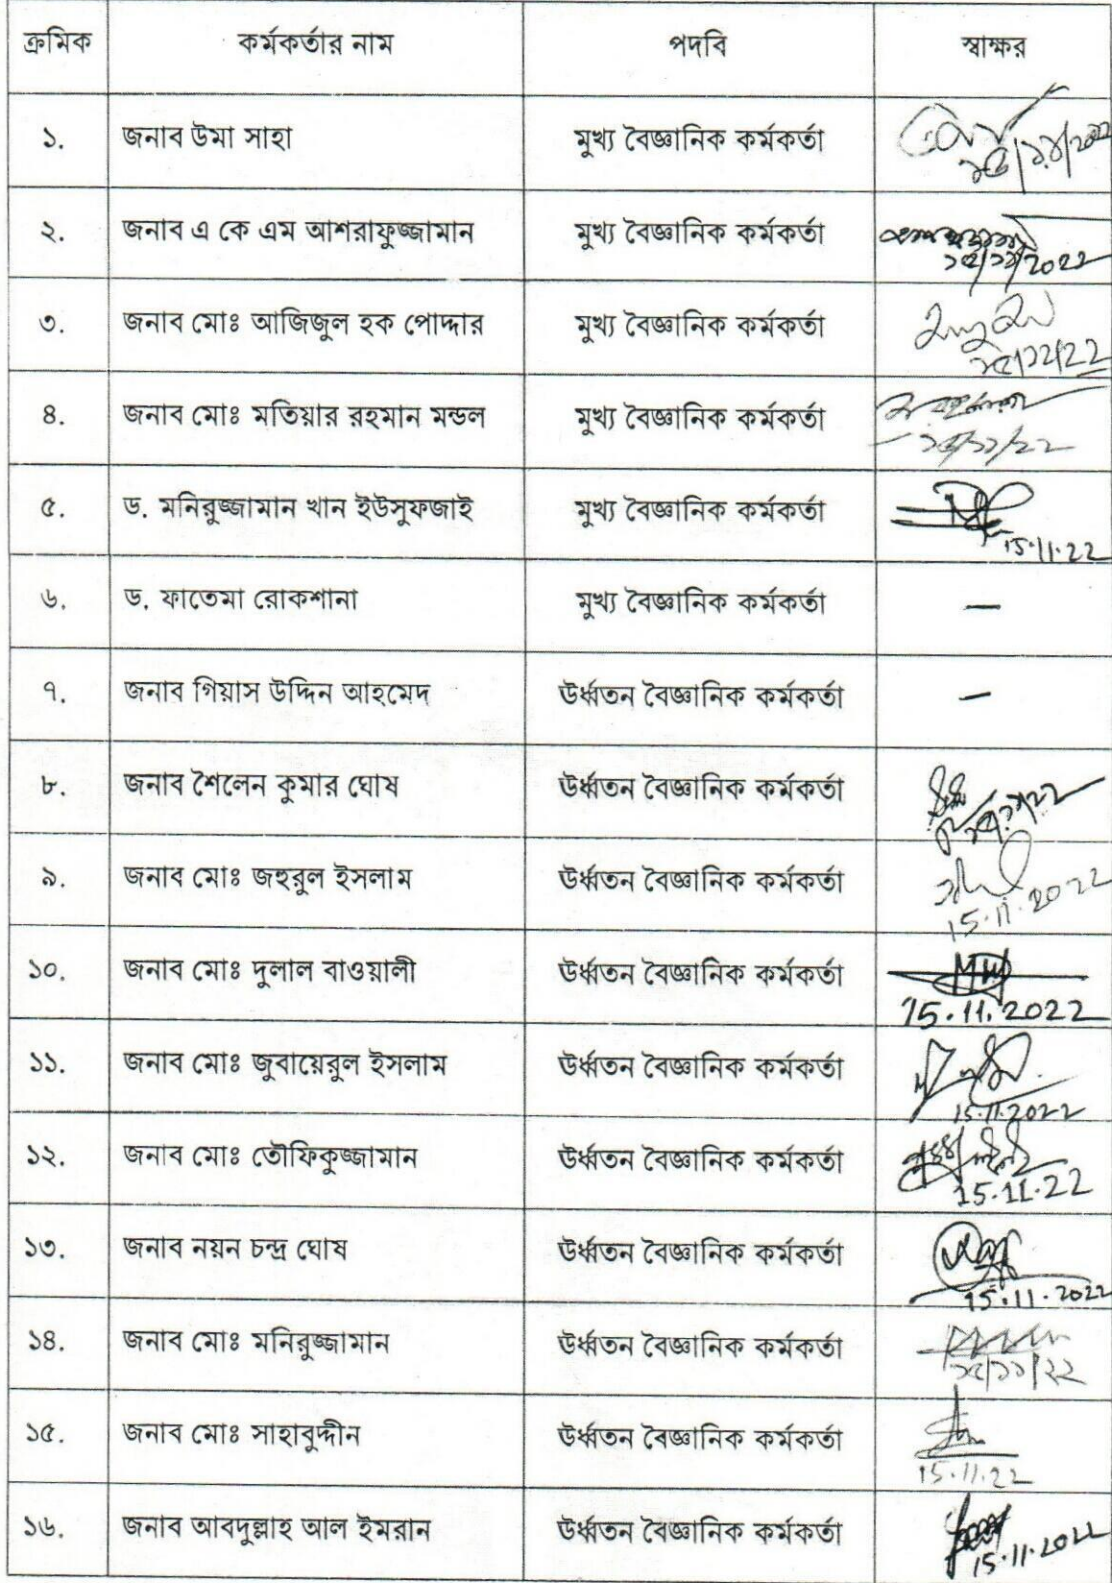 ক্রমিক কর্মকর্তার নাম পদবি স্বাক্ষর
১. জনাব উমা সাহা মুখ্য বৈজ্ঞানিক কর্মকর্তা ১৫/১১/২০২২
২. জনাব এ কে এম আশরাফুজ্জামান মুখ্য বৈজ্ঞানিক কর্মকর্তা ১৫/১১/2022
৩. জনাব মোঃ আজিজুল হক পোদ্দার মুখ্য বৈজ্ঞানিক কর্মকর্তা ১৫/১১/22
৪. জনাব মোঃ মতিয়ার রহমান মন্ডল মুখ্য বৈজ্ঞানিক কর্মকর্তা ১৫/১১/২২
৫. ড. মনিরুজ্জামান খান ইউসুফজাই মুখ্য বৈজ্ঞানিক কর্মকর্তা 15.11.22
৬. ড. ফাতেমা রোকশানা মুখ্য বৈজ্ঞানিক কর্মকর্তা —
৭. জনাব গিয়াস উদ্দিন আহমেদ ঊর্ধ্বতন বৈজ্ঞানিক কর্মকর্তা —
৮. জনাব শৈলেন কুমার ঘোষ ঊর্ধ্বতন বৈজ্ঞানিক কর্মকর্তা
৯. জনাব মোঃ জহুরুল ইসলাম ঊর্ধ্বতন বৈজ্ঞানিক কর্মকর্তা 15.11.2022
১০. জনাব মোঃ দুলাল বাওয়ালী ঊর্ধ্বতন বৈজ্ঞানিক কর্মকর্তা 15.11.2022
১১. জনাব মোঃ জুবায়েরুল ইসলাম ঊর্ধ্বতন বৈজ্ঞানিক কর্মকর্তা 15.11.2022
১২. জনাব মোঃ তৌফিকুজ্জামান ঊর্ধ্বতন বৈজ্ঞানিক কর্মকর্তা 15.11.22
১৩. জনাব নয়ন চন্দ্র ঘোষ ঊর্ধ্বতন বৈজ্ঞানিক কর্মকর্তা 15.11.2022
১৪. জনাব মোঃ মনিরুজ্জামান ঊর্ধ্বতন বৈজ্ঞানিক কর্মকর্তা ১৫/১১/২২
১৫. জনাব মোঃ সাহাবুদ্দীন ঊর্ধ্বতন বৈজ্ঞানিক কর্মকর্তা 15.11.22
১৬. জনাব আবদুল্লাহ আল ইমরান ঊর্ধ্বতন বৈজ্ঞানিক কর্মকর্তা 15.11.2022